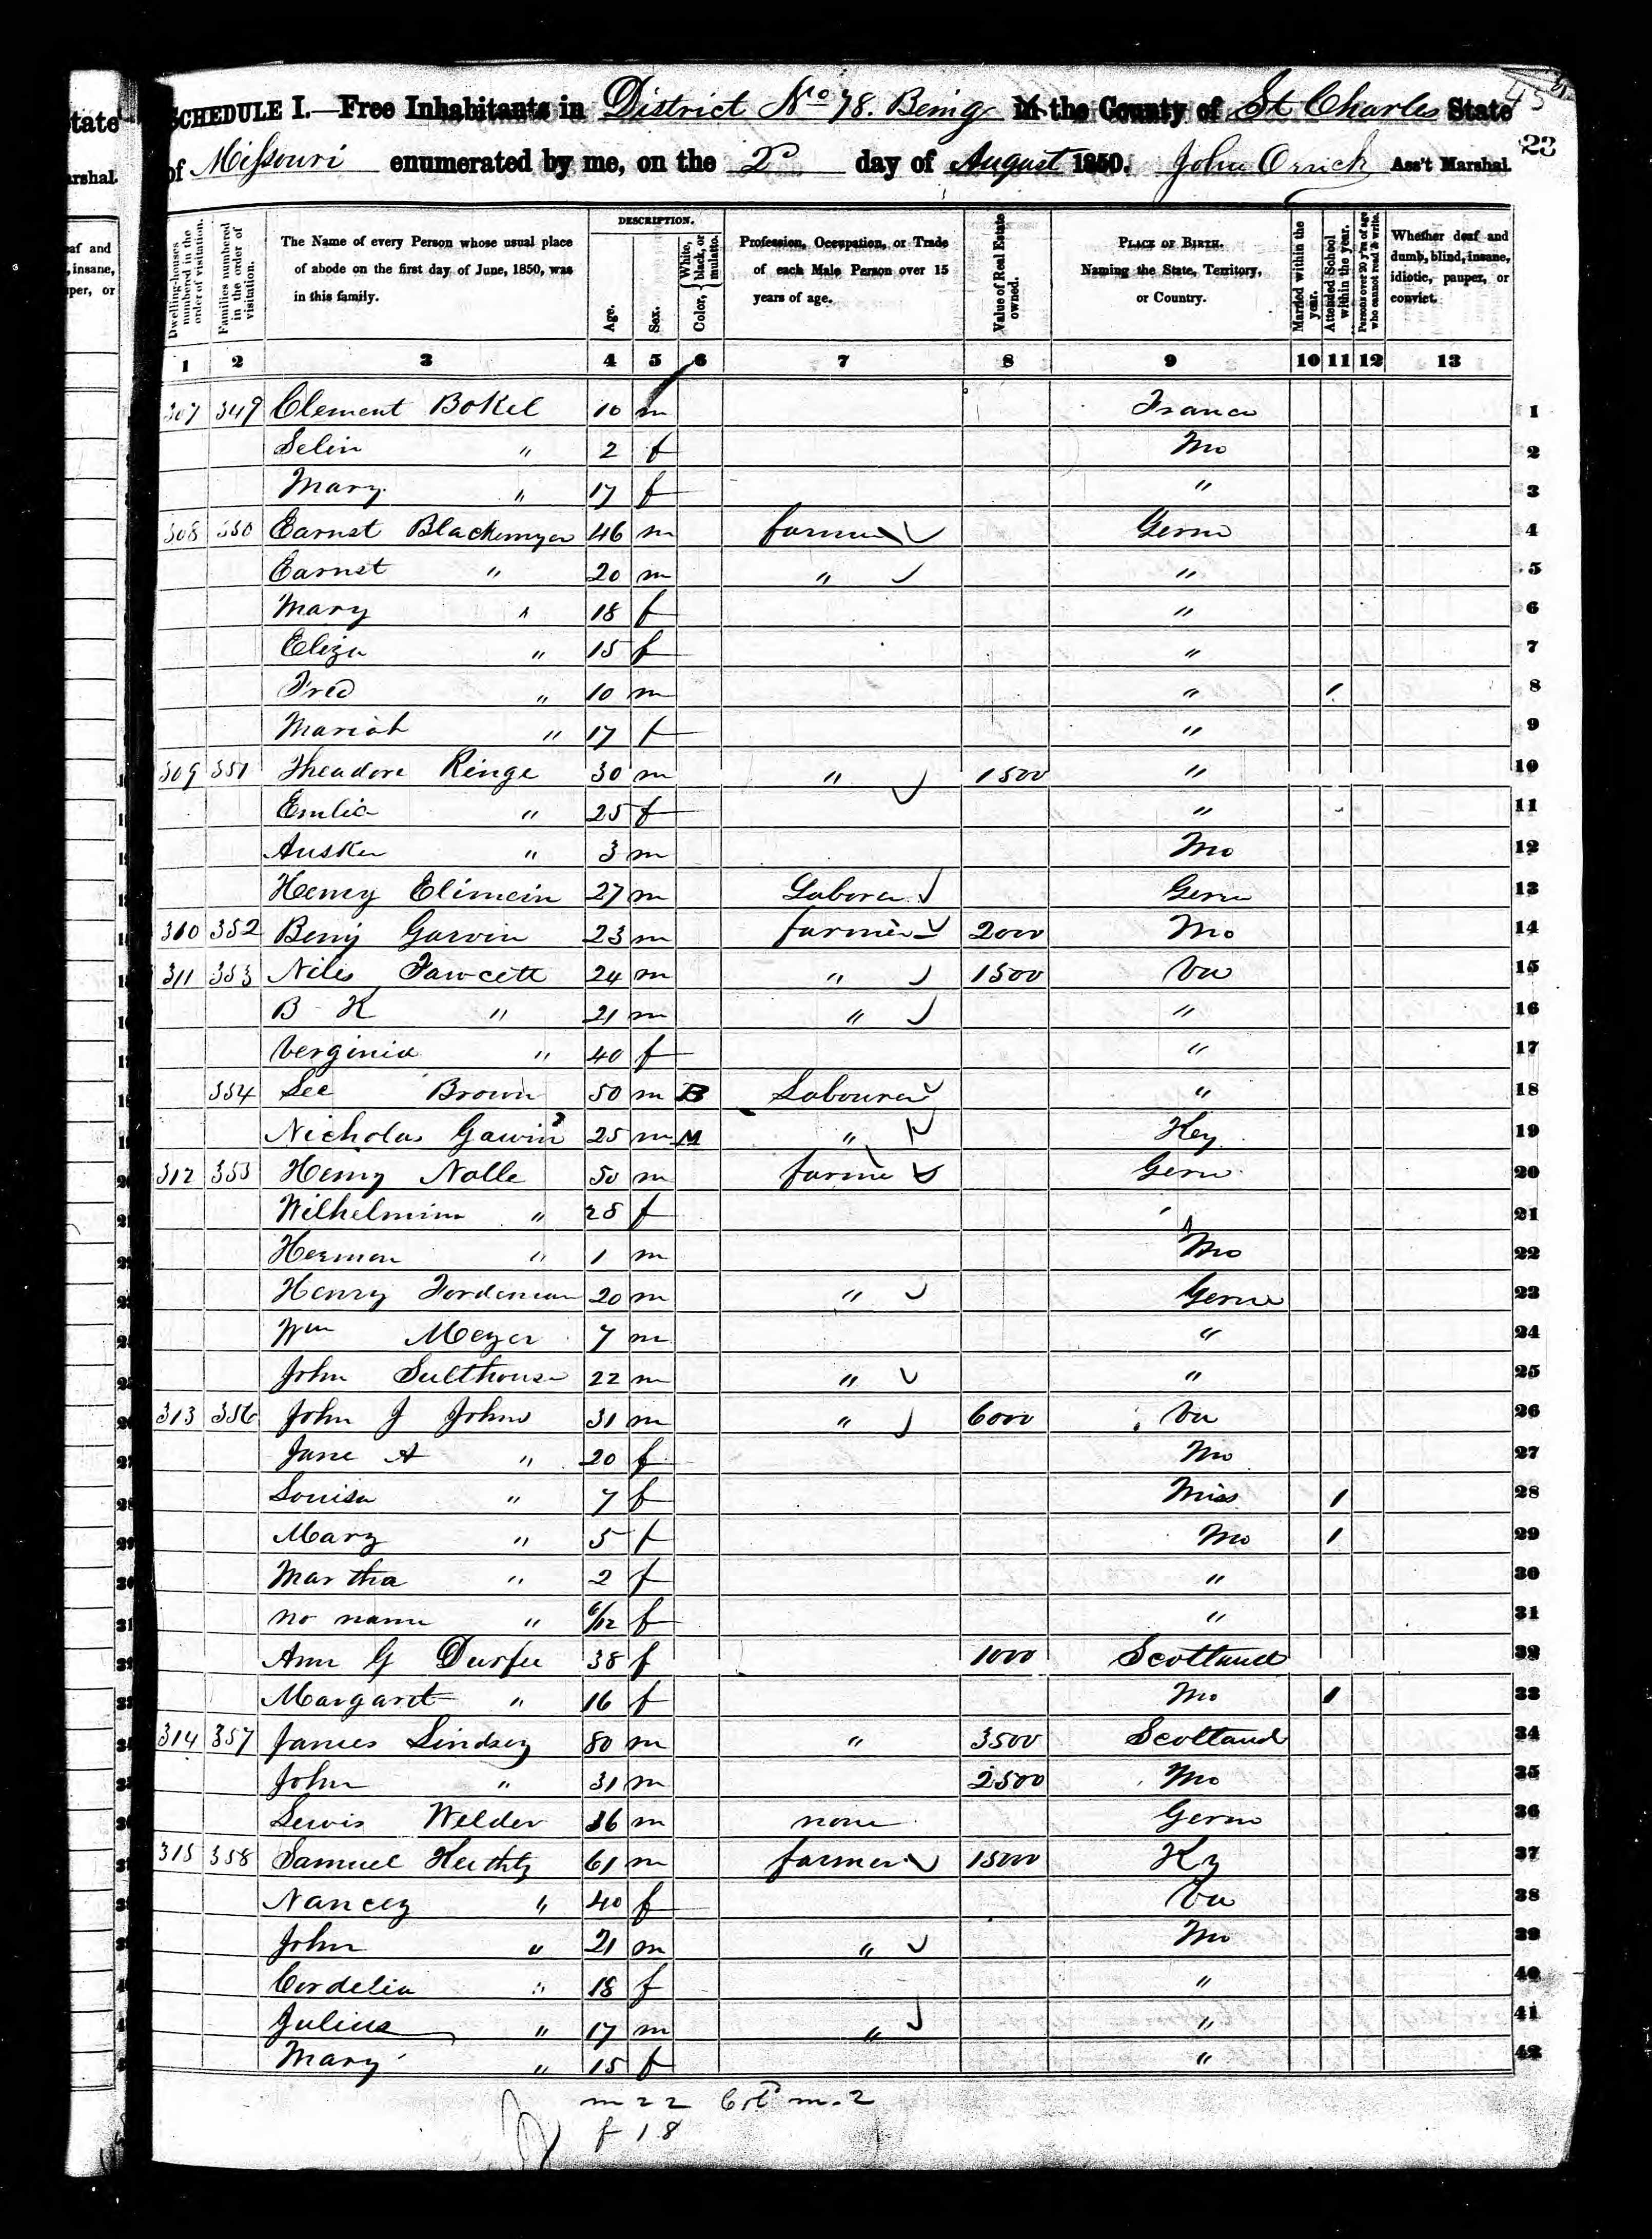 tate
arshal.
af and
, insane,
per, or
45
23
SCHEDULE I.—Free Inhabitants in District No 78. Being in the County of St Charles State
of Missouri enumerated by me, on the 2d day of August 1850. John Orrick Ass't Marshal.
Dwelling-houses numbered in the order of visitation.
Families numbered in the order of visitation.
The Name of every Person whose usual place of abode on the first day of June, 1850, was in this family.
DESCRIPTION.
Age.
Sex.
Color, White, black, or mulatto.
Profession, Occupation, or Trade of each Male Person over 15 years of age.
Value of Real Estate owned.
PLACE OF BIRTH. Naming the State, Territory, or Country.
Married within the year.
Attended School within the year.
Persons over 20 y'rs of age who cannot read & write.
Whether deaf and dumb, blind, insane, idiotic, pauper, or convict.
1 2 3 4 5 6 7 8 9 10 11 12 13
307 349 Clement Bokel 10 m France 1
Selin " 2 f Mo 2
Mary " 17 f " 3
308 350 Earnst Blackemyer 46 m farmer Germ 4
Earnst " 20 m " " 5
Mary " 18 f " 6
Eliza " 15 f " 7
Fred " 10 m " 1 8
Mariah " 17 f " 9
309 351 Theadore Ringe 30 m " 1500 " 10
Emlie " 25 f " 11
Ausker " 3 m Mo 12
Henry Elimein 27 m Laborer Germ 13
310 352 Benj Garvin 23 m farmer 2000 Mo 14
311 353 Niles Fawcett 24 m " 1500 Va 15
B K " 21 m " " 16
Verginia " 40 f " 17
354 Lee Brown 50 m B Labourer " 18
Nicholas Gawin 25 m M " Key 19
312 355 Henry Nolle 50 m farmer Germ 20
Wilhelmina " 28 f " 21
Herman " 1 m Mo 22
Henry Fordeman 20 m " Germ 23
Wm Meyer 7 m " 24
John Sulthouse 22 m " " 25
313 356 John J Johns 31 m " 6000 Va 26
Jane A " 20 f Mo 27
Louisa " 7 f Miss 1 28
Mary " 5 f Mo 1 29
Martha " 2 f " 30
no name " 6/12 f " 31
Ann G Durfee 38 f 1000 Scotland 32
Margaret " 16 f Mo 1 33
314 357 James Lindsey 80 m " 3500 Scotland 34
John " 31 m 2500 Mo 35
Lewis Welder 36 m none Germ 36
315 358 Samuel Keithly 61 m farmer 15000 Ky 37
Nancey " 40 f Va 38
John " 21 m " Mo 39
Cordelia " 18 f " 40
Julius " 17 m " " 41
Mary " 15 f " 42
m 22 Cold m. 2
f 18